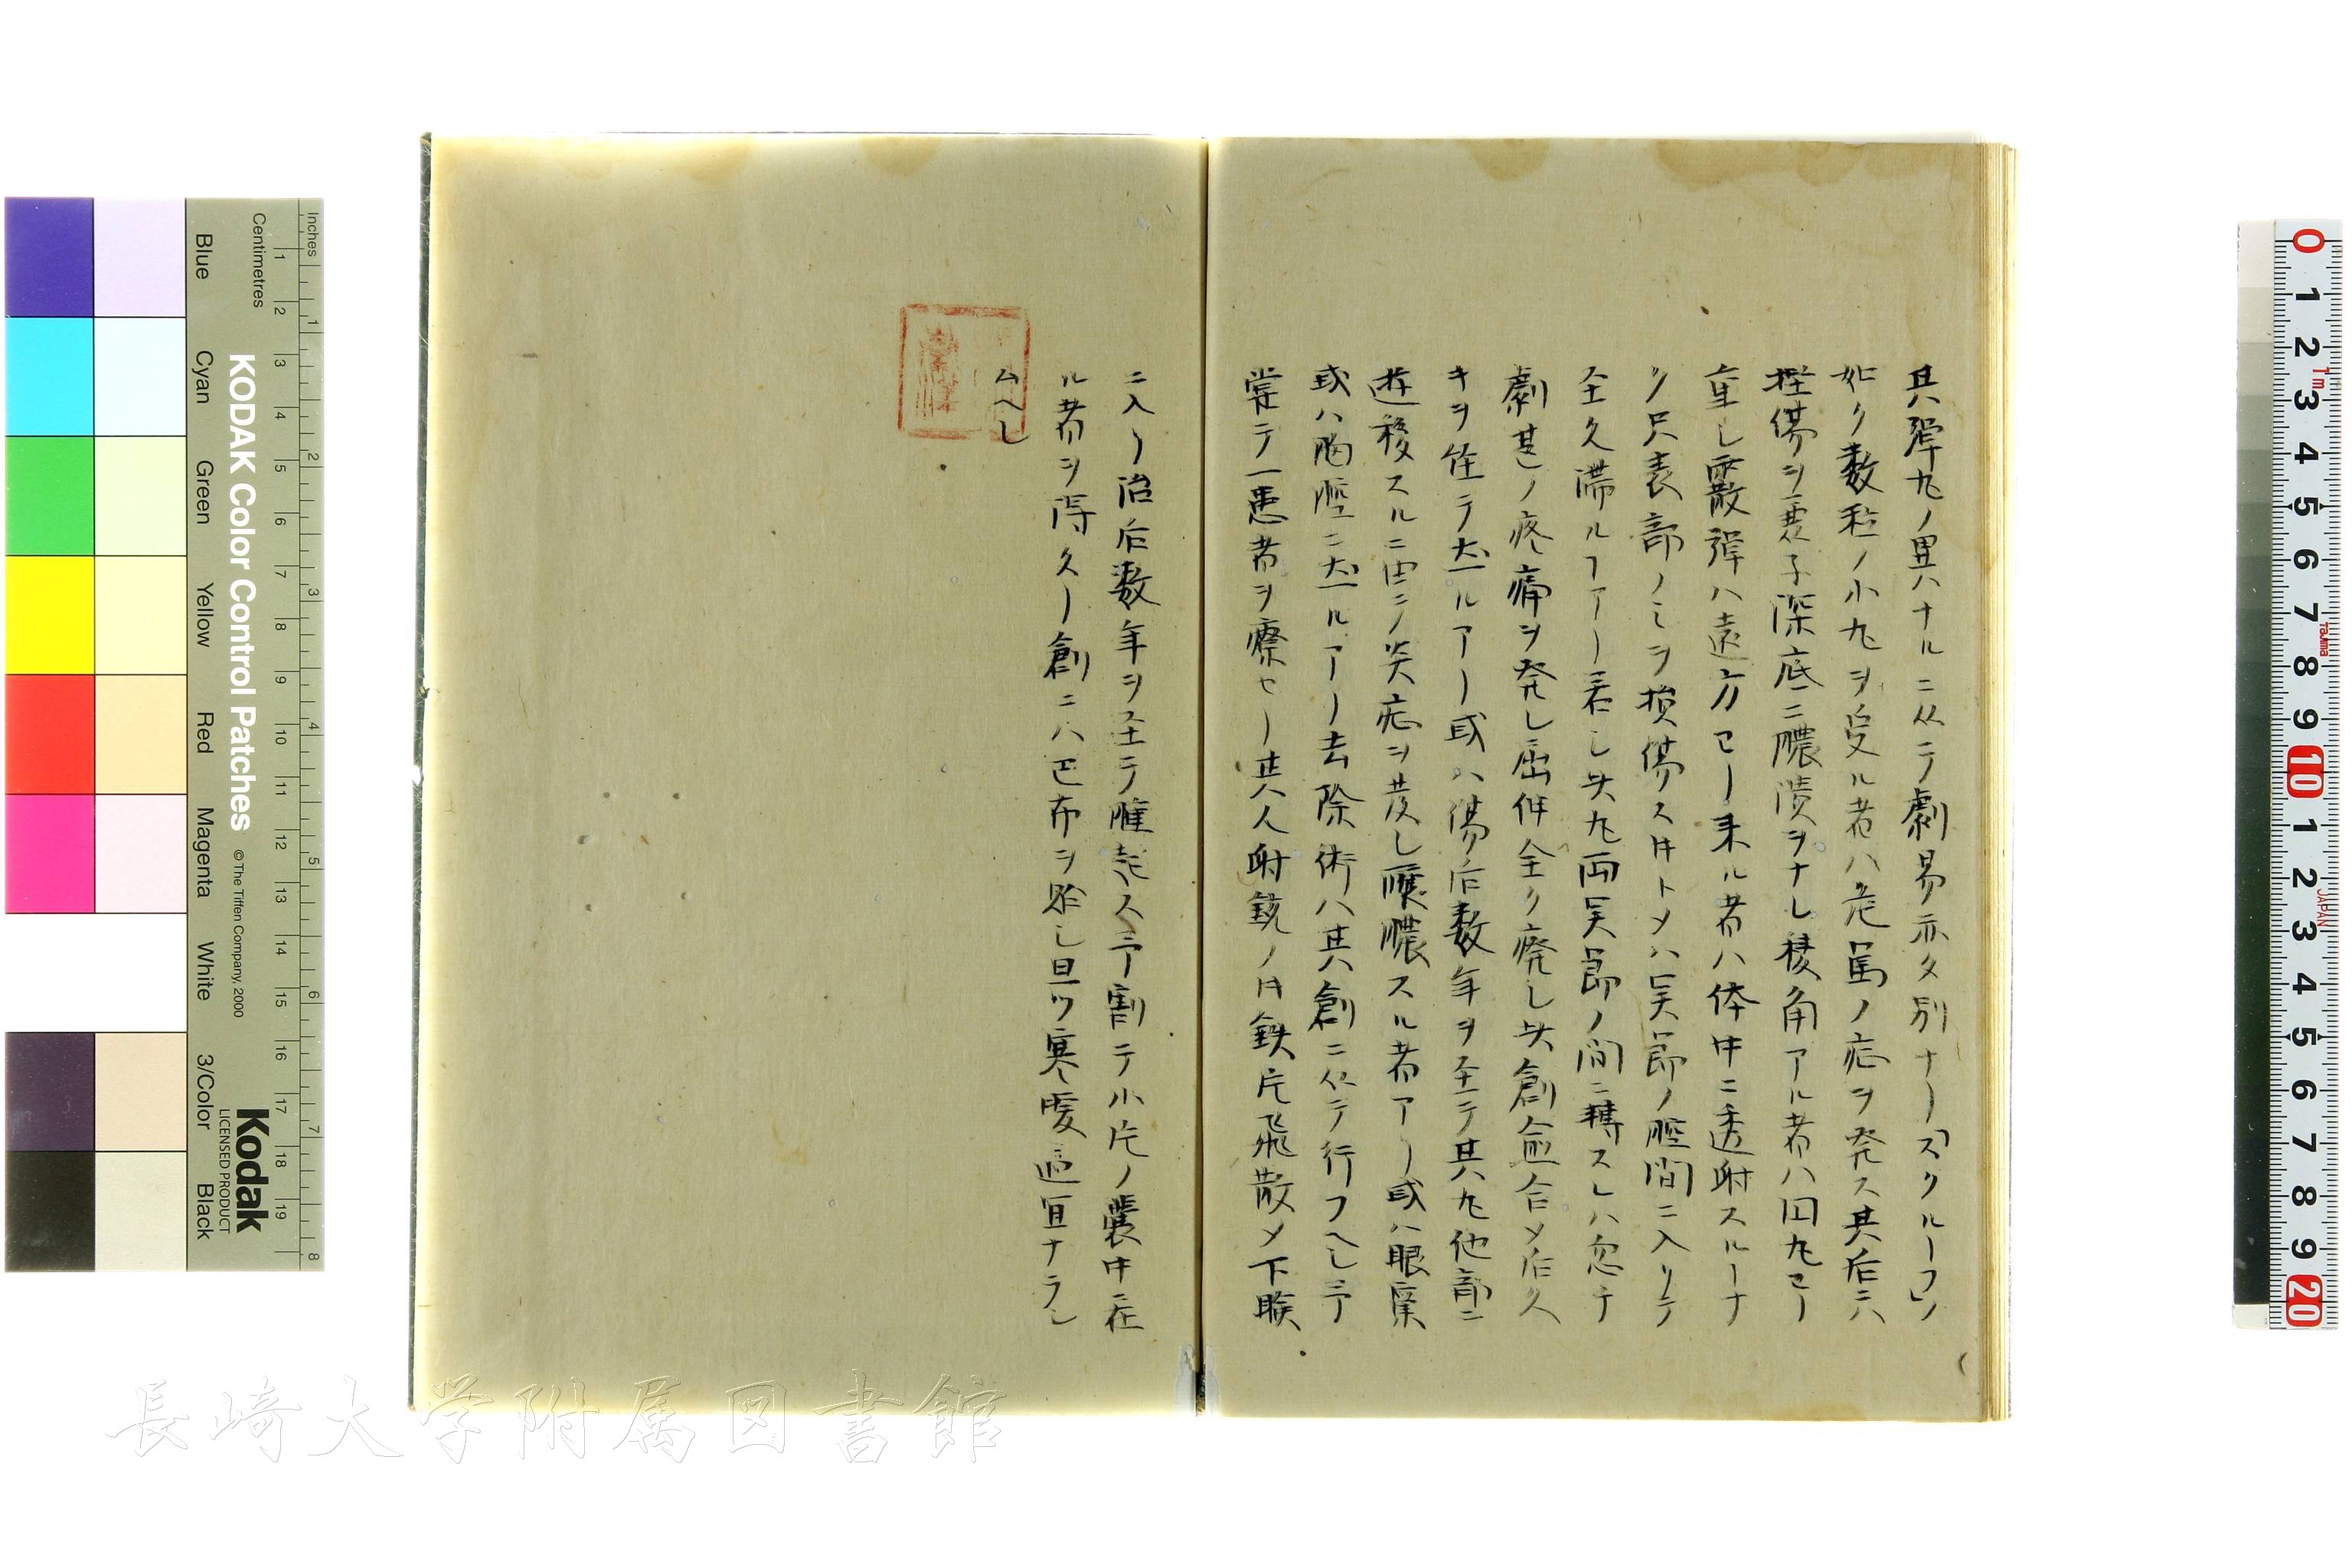 其弾丸ノ異ハナルニ从テ劇易亦タ別ナリ「スクルーフ」ノ
如ク数粒ノ小丸ヲ受ル者ハ危篤ノ症ヲ発ス其后ニハ
挫傷ヲ兼子深底ニ膿潰ヲナし稜角アル者ハ円丸ヨリ
重し霰弾ハ遠方ヨリ来ル者ハ体中ニ透射スルナ
ク只表部ノミヲ損傷ス トメハ関節ノ腔間ニ入リテ
全久滞ルアリ若し失丸両関節ノ間ニ轉スレハ忽チ
劇甚ノ疼痛ヲ発し屈伸全ク癈し失創愈合メ后久
キヲ経テ 出ルアリ或ハ傷后数年ヲ至テ其丸他部ニ
遊移スルニ由テ炎症ヲ発し醸膿スル者アリ或ハ眼窠
或ハ胸腔ニ出ルアリ去除術ハ其創ニ从テ行フヘし
嘗テ一患者ヲ療セリ其人射銃ノ片鉄片飛散メ下瞼
ニ入リ治后数年ヲ至テ腫起ス 割テ小片ノ嚢中在
ル者ヲ得タリ創ニハ巴布ヲ貼し且ツ寒暖適宜ナラし
ムヘし
長崎大学附属図書館
KODAK Color Control Patches
© The Tiffen Company, 2000
Kodak
LICENSED PRODUCT
Inches
Centimetres
Blue
Cyan
Green
Yellow
Red
Magenta
White
3/Color
Black
1 2 3 4 5 6 7 8 9 10 11 12 13 14 15 16 17 18 19
1 2 3 4 5 6 7 8
0 1 2 3 4 5 6 7 8 9 10 1 2 3 4 5 6 7 8 9 20
1m
Tajima
JAPAN